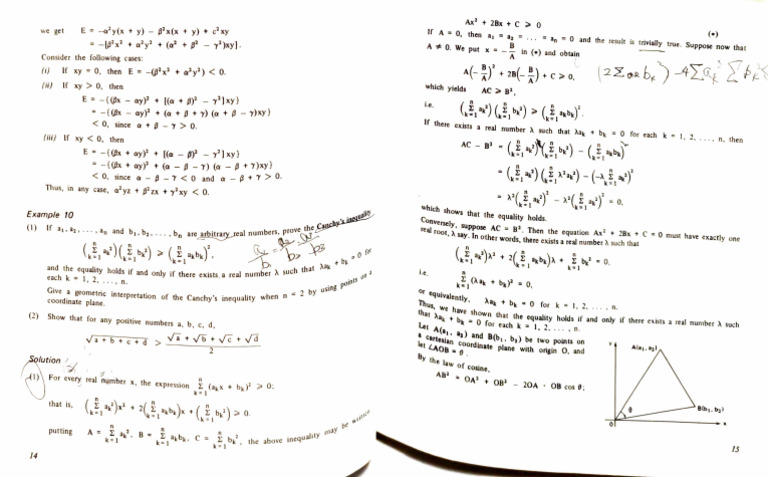 we get E = −α²y(x + y) − β²x(x + y) + c²xy
= −[β²x² + α²y² + (α² + β² − γ²)xy].
Consider the following cases:
(i) If xy = 0, then E = −(β²x² + α²y²) < 0.
(ii) If xy > 0, then
E = −{(βx − αy)² + [(α + β)² − γ²]xy}
= −{(βx − αy)² + (α + β + γ) (α + β − γ)xy}
< 0, since α + β − γ > 0.
(iii) If xy < 0, then
E = −{(βx + αy)² + [(α − β)² − γ²]xy}
= −{(βx + αy)² + (α − β − γ) (α − β + γ)xy}
< 0, since α − β − γ < 0 and α − β + γ > 0.
Thus, in any case, α²yz + β²zx + γ²xy < 0.
Example 10
(1) If a₁, a₂, . . . , aₙ and b₁, b₂, . . . , bₙ are arbitrary real numbers, prove the Canchy's inequality
(Σₖ₌₁ⁿ aₖ²)(Σₖ₌₁ⁿ bₖ²) ≥ (Σₖ₌₁ⁿ aₖbₖ)²,
and the equality holds if and only if there exists a real number λ such that λaₖ + bₖ = 0 for
each k = 1, 2, . . . , n.
Give a geometric interpretation of the Canchy's inequality when n = 2 by using points on a
coordinate plane.
(2) Show that for any positive numbers a, b, c, d,
√(a + b + c + d) > (√a + √b + √c + √d)/2
Solution
(1) For every real number x, the expression Σₖ₌₁ⁿ (aₖx + bₖ)² ≥ 0;
that is, (Σₖ₌₁ⁿ aₖ²)x² + 2(Σₖ₌₁ⁿ aₖbₖ)x + (Σₖ₌₁ⁿ bₖ²) ≥ 0.
putting A = Σₖ₌₁ⁿ aₖ², B = Σₖ₌₁ⁿ aₖbₖ, C = Σₖ₌₁ⁿ bₖ², the above inequality may be written
14
Ax² + 2Bx + C ≥ 0 (*)
If A = 0, then a₁ = a₂ = . . . = aₙ = 0 and the result is trivially true. Suppose now that
A ≠ 0. We put x = −B/A in (*) and obtain
A(−B/A)² + 2B(−B/A) + C ≥ 0,
which yields AC ≥ B²,
i.e. (Σₖ₌₁ⁿ aₖ²)(Σₖ₌₁ⁿ bₖ²) ≥ (Σₖ₌₁ⁿ aₖbₖ)².
If there exists a real number λ such that λaₖ + bₖ = 0 for each k = 1, 2, . . . , n, then
AC − B² = (Σₖ₌₁ⁿ aₖ²)(Σₖ₌₁ⁿ bₖ²) − (Σₖ₌₁ⁿ aₖbₖ)²
= (Σₖ₌₁ⁿ aₖ²)(Σₖ₌₁ⁿ λ²aₖ²) − (−λ Σₖ₌₁ⁿ aₖ²)²
= λ²(Σₖ₌₁ⁿ aₖ²)² − λ²(Σₖ₌₁ⁿ aₖ²)² = 0,
which shows that the equality holds.
Conversely, suppose AC = B². Then the equation Ax² + 2Bx + C = 0 must have exactly one
real root, λ say. In other words, there exists a real number λ such that
(Σₖ₌₁ⁿ aₖ²)λ² + 2(Σₖ₌₁ⁿ aₖbₖ)λ + Σₖ₌₁ⁿ bₖ² = 0.
i.e. Σₖ₌₁ⁿ (λaₖ + bₖ)² = 0,
or equivalently, λaₖ + bₖ = 0 for k = 1, 2, . . . , n.
Thus, we have shown that the equality holds if and only if there exists a real number λ such
that λaₖ + bₖ = 0 for each k = 1, 2, . . . , n.
Let A(a₁, a₂) and B(b₁, b₂) be two points on
a cartesian coordinate plane with origin O, and
let ∠AOB = θ.
By the law of cosine,
AB² = OA² + OB² − 2OA · OB cos θ;
y
A(a₁, a₂)
B(b₁, b₂)
θ
0
x
15